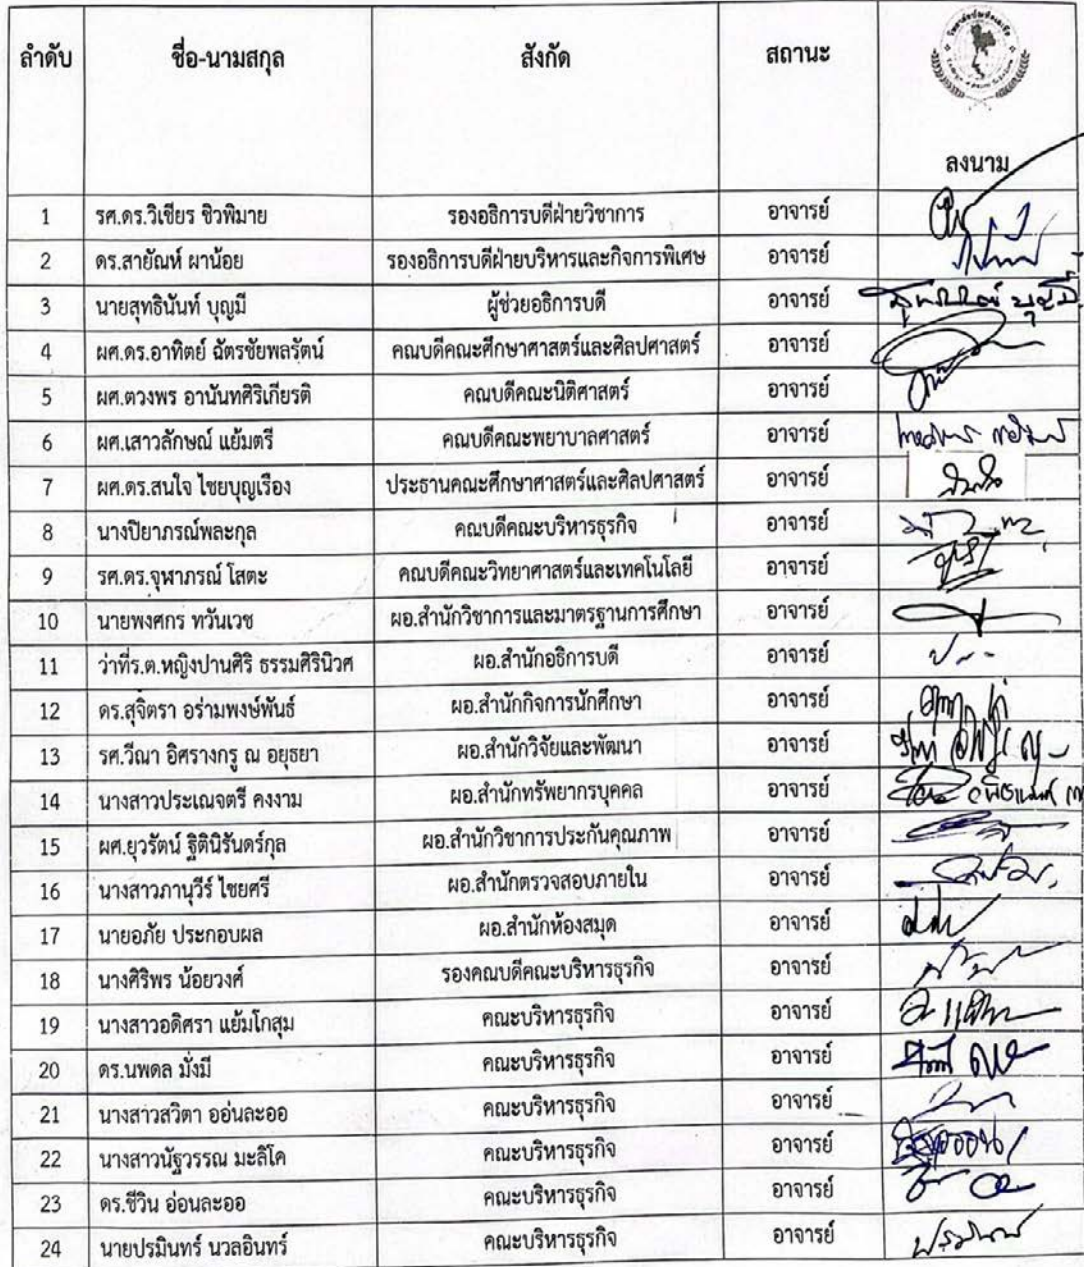 ลำดับ ชื่อ-นามสกุล สังกัด สถานะ
ลงนาม
1 รศ.ดร.วิเชียร ชิวพิมาย รองอธิการบดีฝ่ายวิชาการ อาจารย์
2 ดร.สายัณห์ ผาน้อย รองอธิการบดีฝ่ายบริหารและกิจการพิเศษ อาจารย์
3 นายสุทธินันท์ บุญมี ผู้ช่วยอธิการบดี อาจารย์
4 ผศ.ดร.อาทิตย์ ฉัตรชัยพลรัตน์ คณบดีคณะศึกษาศาสตร์และศิลปศาสตร์ อาจารย์
5 ผศ.ตวงพร อานันทศิริเกียรติ คณบดีคณะนิติศาสตร์ อาจารย์
6 ผศ.เสาวลักษณ์ แย้มตรี คณบดีคณะพยาบาลศาสตร์ อาจารย์
7 ผศ.ดร.สนใจ ไชยบุญเรือง ประธานคณะศึกษาศาสตร์และศิลปศาสตร์ อาจารย์
8 นางปิยาภรณ์พละกุล คณบดีคณะบริหารธุรกิจ อาจารย์
9 รศ.ดร.จุฬาภรณ์ โสตะ คณบดีคณะวิทยาศาสตร์และเทคโนโลยี อาจารย์
10 นายพงศกร ทวันเวช ผอ.สำนักวิชาการและมาตรฐานการศึกษา อาจารย์
11 ว่าที่ร.ต.หญิงปานศิริ ธรรมศิรินิวศ ผอ.สำนักอธิการบดี อาจารย์
12 ดร.สุจิตรา อร่ามพงษ์พันธ์ ผอ.สำนักกิจการนักศึกษา อาจารย์
13 รศ.วีณา อิศรางกรู ณ อยุธยา ผอ.สำนักวิจัยและพัฒนา อาจารย์
14 นางสาวประเณจตรี คงงาม ผอ.สำนักทรัพยากรบุคคล อาจารย์
15 ผศ.ยุวรัตน์ ฐิตินิรันดร์กุล ผอ.สำนักวิชาการประกันคุณภาพ อาจารย์
16 นางสาวภานุวีร์ ไชยศรี ผอ.สำนักตรวจสอบภายใน อาจารย์
17 นายอภัย ประกอบผล ผอ.สำนักห้องสมุด อาจารย์
18 นางศิริพร น้อยวงศ์ รองคณบดีคณะบริหารธุรกิจ อาจารย์
19 นางสาวอดิศรา แย้มโกสุม คณะบริหารธุรกิจ อาจารย์
20 ดร.นพดล มั่งมี คณะบริหารธุรกิจ อาจารย์
21 นางสาวสวิตา อ่อนละออ คณะบริหารธุรกิจ อาจารย์
22 นางสาวนัฐวรรณ มะลิโค คณะบริหารธุรกิจ อาจารย์
23 ดร.ชีวิน อ่อนละออ คณะบริหารธุรกิจ อาจารย์
24 นายปรมินทร์ นวลอินทร์ คณะบริหารธุรกิจ อาจารย์